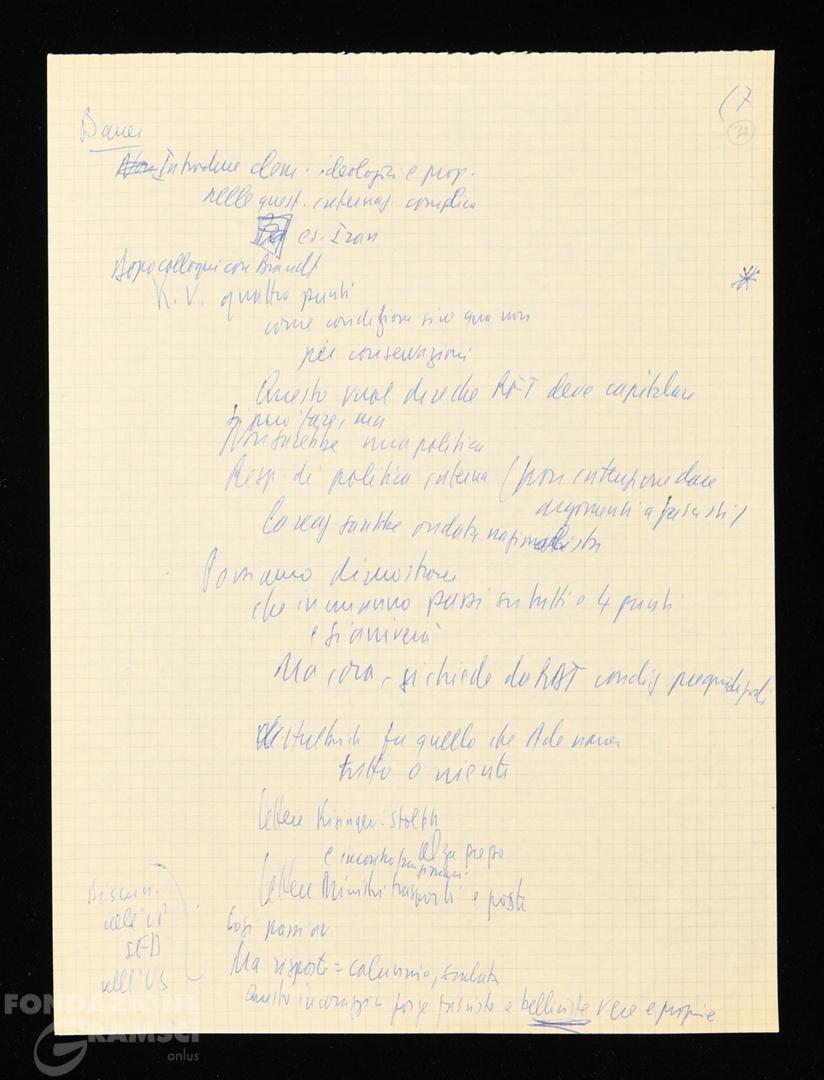 (7
32
Bauer
Introdurre elem. ideologici e prop.
nelle quest. internaz complica
es. Iran
Dopo colloqui con Brandt
K.V. quattro punti
come condizione sine qua non
per conservazioni
Questo vuol dire che RFT deve capitolare
si può fare, ma
Non sarebbe una politica
Resp. di politica interna (non intenzione dare
argomenti a fascisti)
La reaz sarebbe ondata nazionalista
Possiamo dimostrare
che in un anno passi su tutti e 4 punti
e si arriverà
Ma, ora, si chiede da RFT condiz pregiudiziali
Ulbricht fa quello che Adenauer
tutto o niente
Lettere Kisinger-Stoph
e incontro
Lettere Ministri trasporti e poste
Così passi av.
Ma risposte = calunnie,
Questo incoraggia forze fasciste e belliciste vere e proprie
Discuss.
nell'UP
SED
nell'US
FONDAZIONE
GRAMSCI
onlus